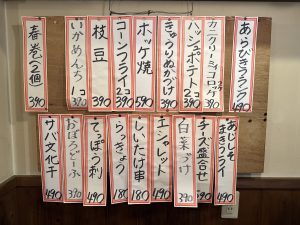 あらびきフランク 490
カニクリーミィコロッケ 2コ 390
ハッシュポテト 2コ 390
きゅうりぬかづけ 390
ホッケ焼 590
コーンフライ 2コ 390
枝豆 390
いかめんち 1コ 390
春巻(2個) 390
あじしそまきフライ 490
チーズ盛合せ 490
白菜づけ 390
エシャレット 490
しいたけ串 180
らっきょう 180
てっぽう刺 490
おぼろどーふ 390
サバ文化干 490